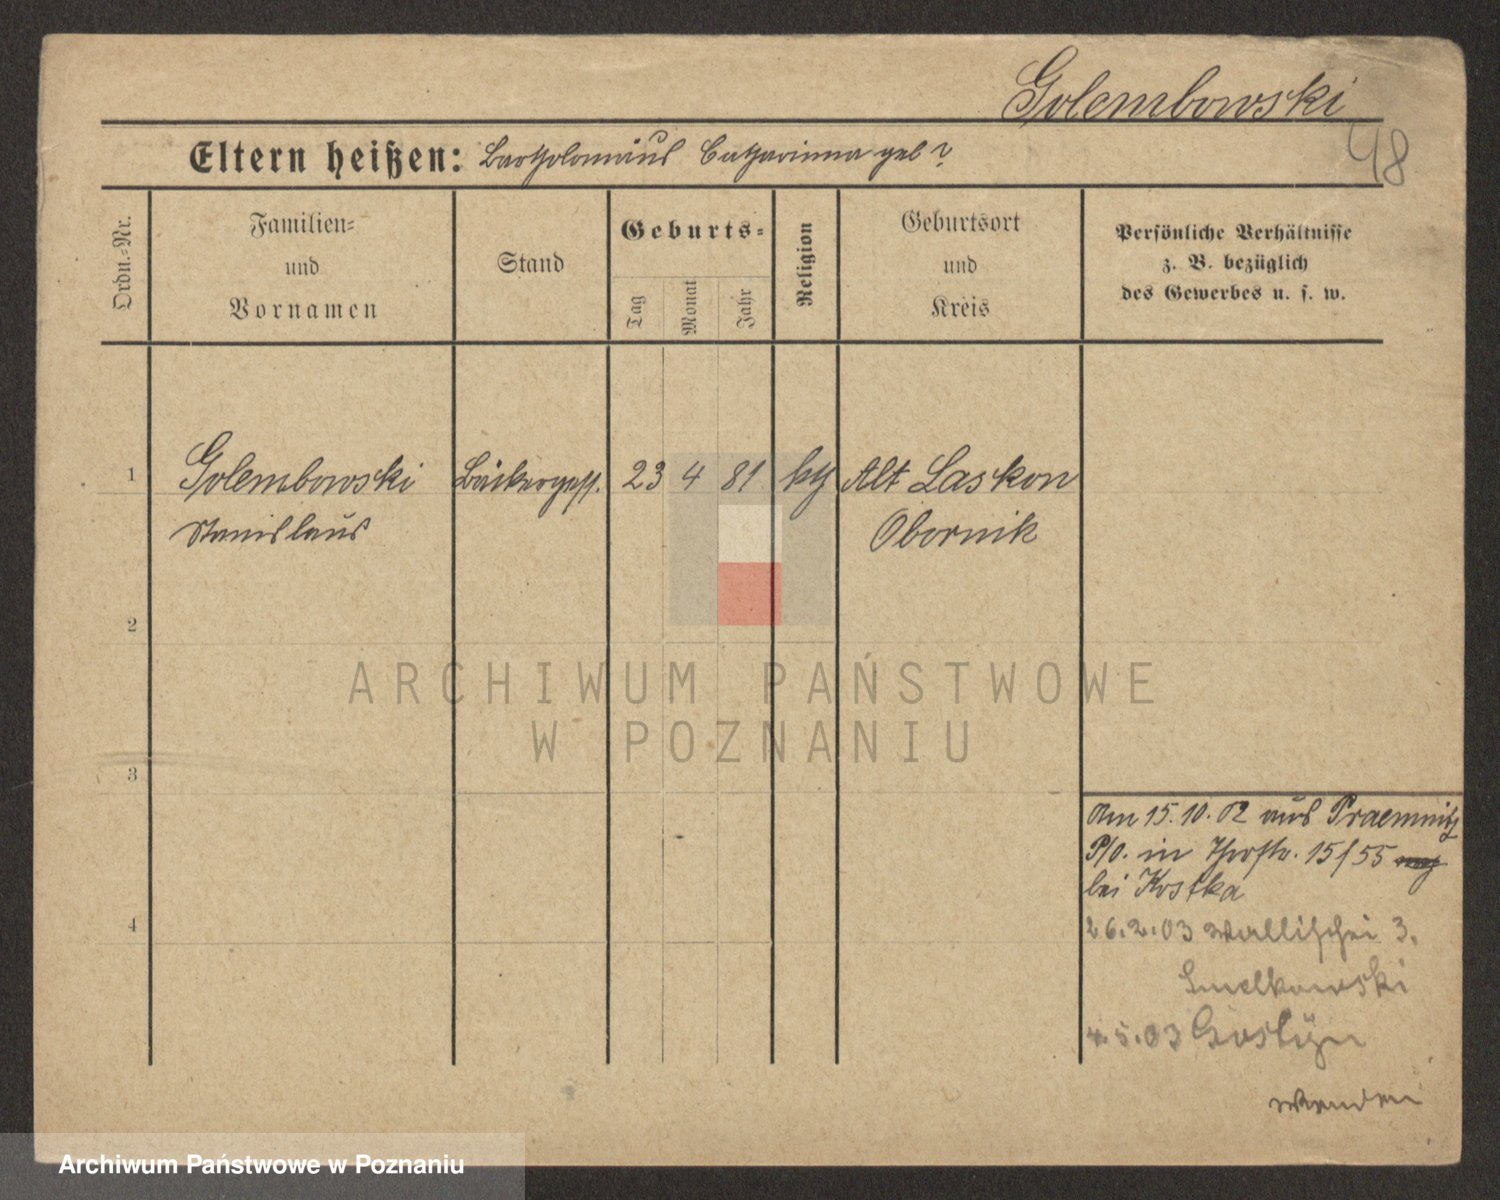 Golembowski
48
Eltern heißen: Bartholomäus Catharinna geb ?
Ordn.-Nr.
Familien-
und
Vornamen
Stand
Geburts-
Tag
Monat
Jahr
Religion
Geburtsort
und
Kreis
Persönliche Verhältnisse
z. B. bezüglich
des Gewerbes u. s. w.
1 Golembowski Bäckergess. 23 4 81 kth Alt Laskon
Stanislaus Obornik
2
3
4
Am 15.10.02 aus Praemnitz
P/O. in Thorstr. 15/55
bei Kostka
26.2.03 Wallischei 3.
Smelkowski
4.5.03 Gostÿn
wenden
ARCHIWUM PAŃSTWOWE
W POZNANIU
Archiwum Państwowe w Poznaniu